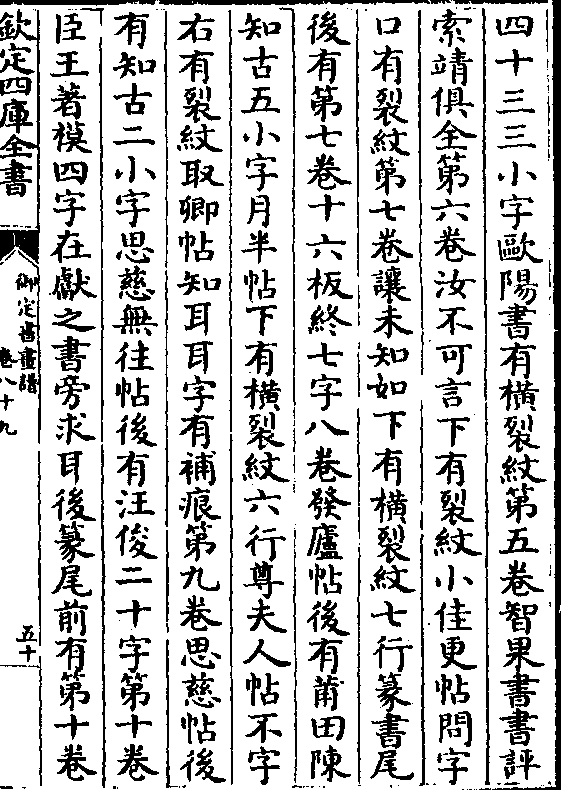 四十三三小字歐陽書有橫裂紋第五卷智果書書評
索靖俱全第六卷汝不可言下有裂紋小佳更帖問字
口有裂紋第七卷讓未知如下有橫裂紋七行篆書尾
後有第七卷十六板終七字八卷發廬帖後有莆田陳
知古五小字月半帖下有橫裂紋六行尊夫人帖不字
右有裂紋取卿帖知耳耳字有補痕第九卷思慈帖後
有知古二小字思慈無往帖後有汪俊二十字第十卷
臣王著模四字在獻之書旁求耳後篆尾前有第十卷
欽定四庫全書
御定書畫譜
卷八十九
五十